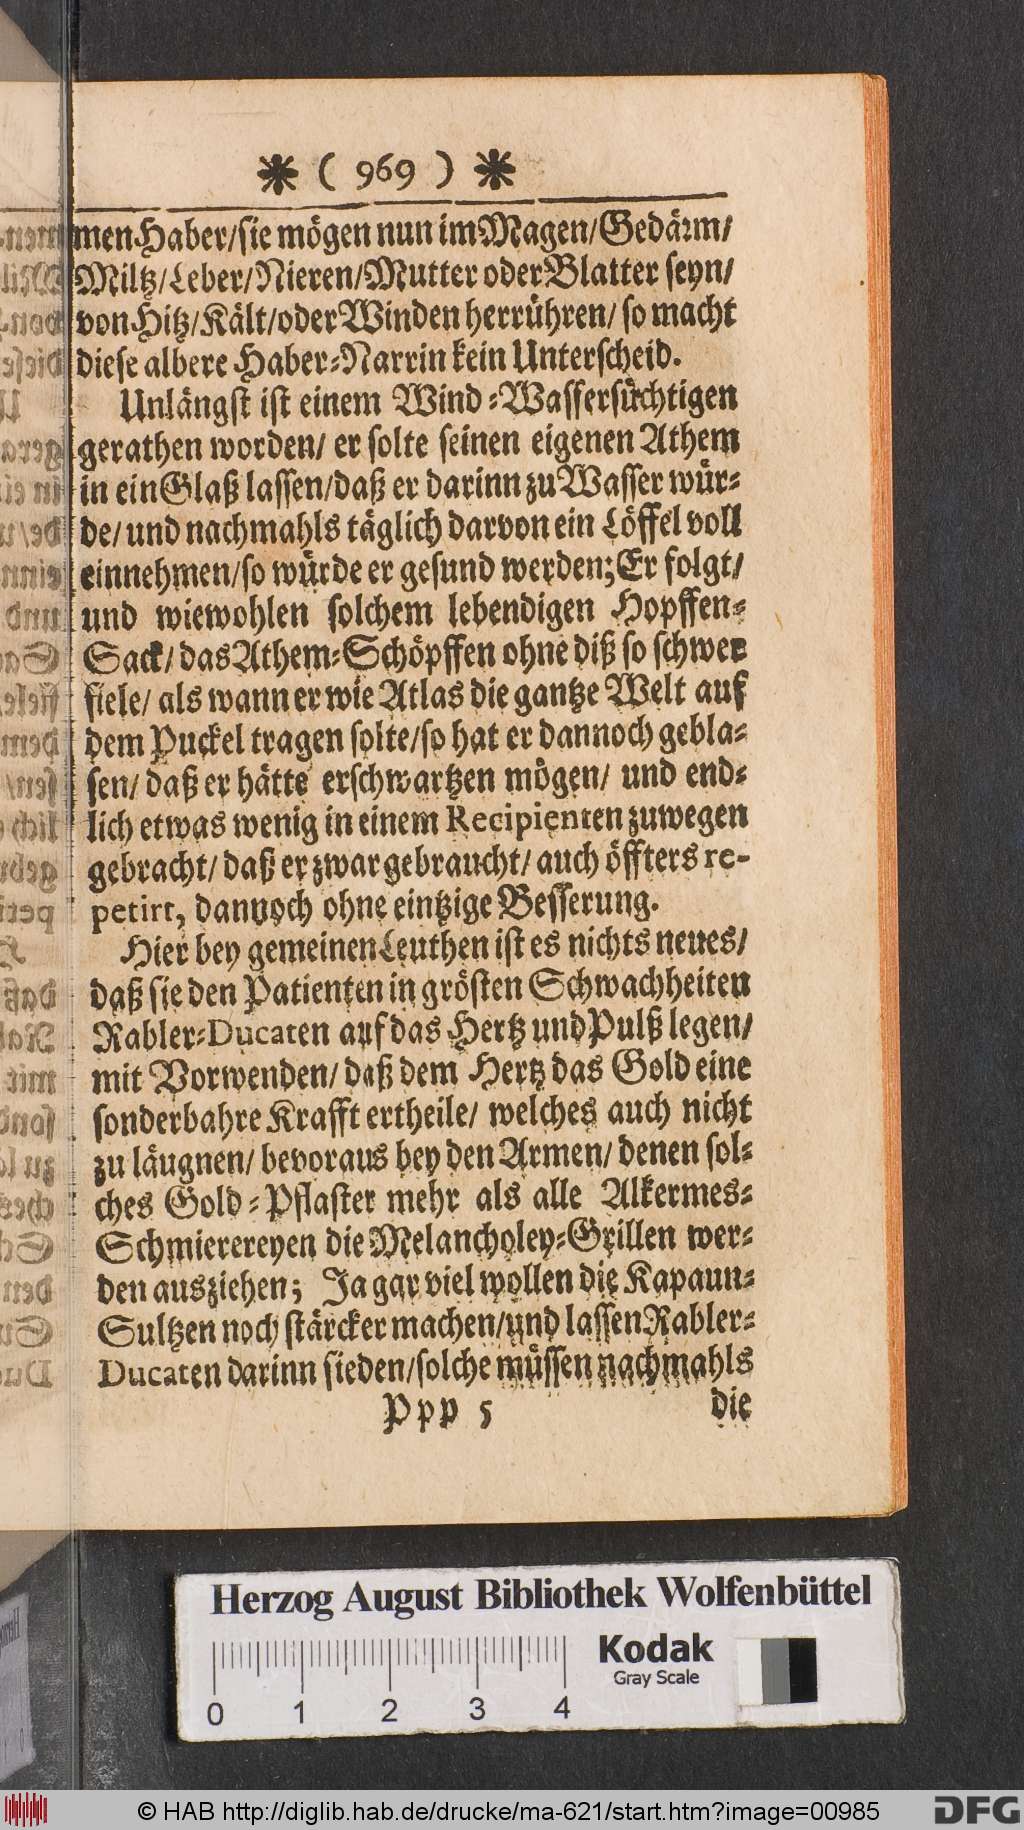 * ( 969 ) *
men Haber/sie mögen nun im Magen/Gedärm/
Miltz/Leber/Nieren/Mutter oder Blatter seyn/
von Hitz/Kält/oder Winden herrühren/ so macht
diese albere Haber-Narrin kein Unterscheid.
Unlängst ist einem Wind-Wassersüchtigen
gerathen worden/ er solte seinen eigenen Athem
in ein Glaß lassen/daß er darinn zu Wasser wür-
de/ und nachmahls täglich darvon ein Löffel voll
einnehmen/so würde er gesund werden; Er folgt/
und wiewohlen solchem lebendigen Hopffen-
Sack/ das Athem-Schöpffen ohne diß so schwer
fiele/ als wann er wie Atlas die gantze Welt auf
dem Puckel tragen solte/so hat er dannoch gebla-
sen/ daß er hätte erschwartzen mögen/ und end-
lich etwas wenig in einem Recipienten zuwegen
gebracht/ daß er zwar gebraucht/ auch öffters re-
petirt, dannoch ohne eintzige Besserung.
Hier bey gemeinen Leuthen ist es nichts neues/
daß sie den Patienten in grösten Schwachheiten
Rabler-Ducaten auf das Hertz und Pulß legen/
mit Vorwenden/ daß dem Hertz das Gold eine
sonderbahre Krafft ertheile/ welches auch nicht
zu läugnen/ bevoraus bey den Armen/ denen sol-
ches Gold-Pflaster mehr als alle Alkermes-
Schmierereyen die Melancholey-Grillen wer-
den ausziehen; Ja gar viel wollen die Kapaun-
Sultzen noch stärcker machen/und lassen Rabler-
Ducaten darinn sieden/solche müssen nachmahls
Ppp 5 die
Herzog August Bibliothek Wolfenbüttel
Kodak
Gray Scale
0 1 2 3 4
© HAB http://diglib.hab.de/drucke/ma-621/start.htm?image=00985
DFG